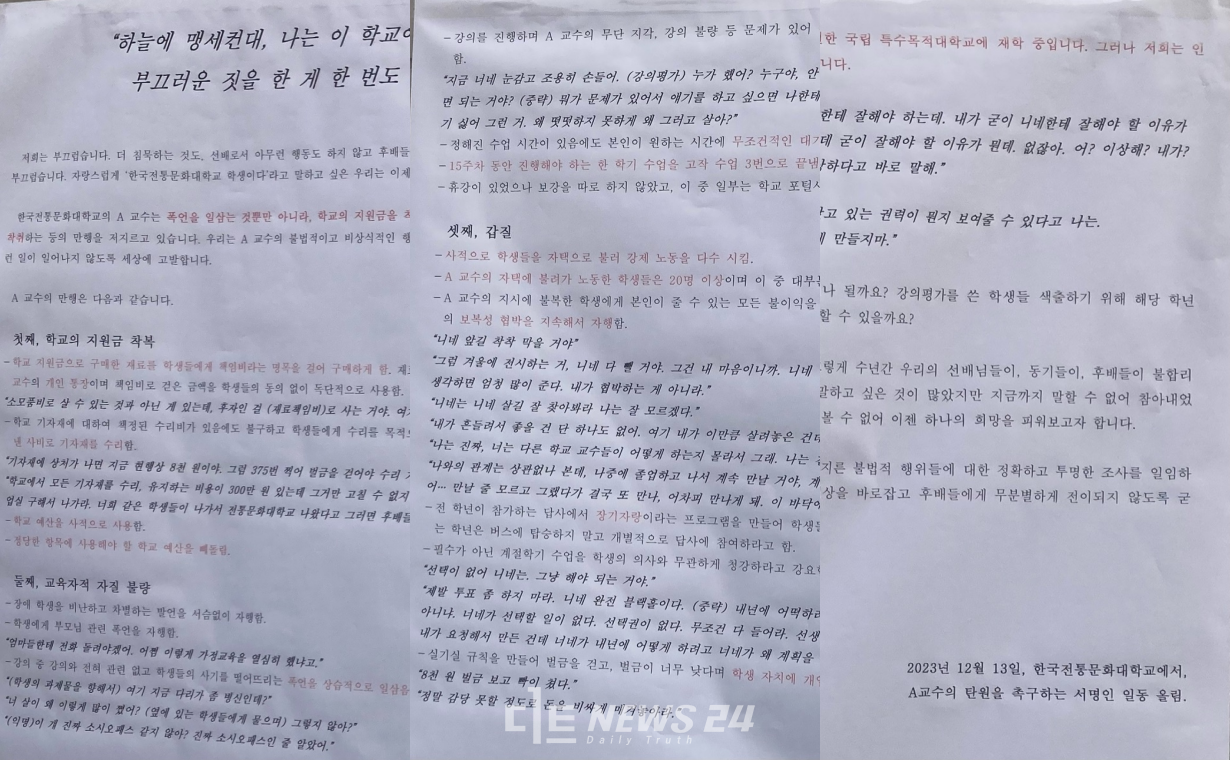 “하늘에 맹세컨대, 나는 이 학교에
부끄러운 짓을 한 게 한 번도
저희는 부끄럽습니다. 더 침묵하는 것도, 선배로서 아무런 행동도 하지 않고 후배들
부끄럽습니다. 자랑스럽게 ‘한국전통문화대학교 학생이다’라고 말하고 싶은 우리는 이제
한국전통문화대학교의 A 교수는 폭언을 일삼는 것뿐만 아니라, 학교의 지원금을 착
착취하는 등의 만행을 저지르고 있습니다. 우리는 A 교수의 불법적이고 비상식적인 행
런 일이 일어나지 않도록 세상에 고발합니다.
A 교수의 만행은 다음과 같습니다.
첫째, 학교의 지원금 착복
-학교 지원금으로 구매한 재료를 학생들에게 책임비라는 명목을 걸어 구매하게 함. 재료
교수의 개인 통장이며 책임비로 걷은 금액을 학생들의 동의 없이 독단적으로 사용함.
“소모품비로 살 수 있는 것과 아닌 게 있는데, 후자인 걸 (재료책임비)로 사는 거야. 여기
-학교 기자재에 대하여 책정된 수리비가 있음에도 불구하고 학생들에게 수리를 목적으
낸 사비로 기자재를 수리함.
“기자재에 상처가 나면 지금 현행상 8천 원이야. 그럼 375번 찍어 벌금을 걷어야 수리 가
“학교에서 모든 기자재를 수리, 유지하는 비용이 300만 원 있는데 그거만 고칠 수 없지
업실 구해서 나가라. 너희 같은 학생들이 나가서 전통문화대학교 나왔다고 그러면 후배들
-학교 예산을 사적으로 사용함.
-정당한 항목에 사용해야 할 학교 예산을 빼돌림.
둘째, 교육자적 자질 불량
-장애 학생을 비난하고 차별하는 발언을 서슴없이 자행함.
-학생에게 부모님 관련 폭언을 자행함.
“엄마들한테 전화 돌려야겠어. 어쩜 이렇게 가정교육을 열심히 했냐고.”
-강의 중 강의와 전혀 관련 없고 학생들의 사기를 떨어뜨리는 폭언을 상습적으로 일삼음
“(학생의 과제물을 향해서) 여기 지금 다리가 좀 병신인데?”
“너 살이 왜 이렇게 많이 쪘어? (옆에 있는 학생들에게 물으며) 그렇지 않아?
“(익명)이 게 진짜 소시오패스 같지 않아? 진짜 소시오패스인 줄 알았어.”
-강의를 진행하며 A 교수의 무단 지각, 강의 불량 등 문제가 있어
함.
“지금 너네 눈감고 조용히 손들어. (강의평가) 누가 했어? 누구야, 안
면 되는 거야? (중략) 뭐가 문제가 있어서 얘기를 하고 싶으면 나한테
기 싫어 그런 거. 왜 떳떳하지 못하게 왜 그러고 살아?”
-정해진 수업 시간이 있음에도 본인이 원하는 시간에 무조건적인 대기
-15주차 동안 진행해야 하는 한 학기 수업을 고작 수업 3번으로 끝냄
-휴강이 있었으나 보강을 따로 하지 않았고, 이 중 일부는 학교 포털시
셋째, 갑질
-사적으로 학생들을 자택으로 불러 강제 노동을 다수 시킴.
-A 교수의 자택에 불려가 노동한 학생들은 20명 이상이며 이 중 대부분
-A 교수의 지시에 불복한 학생에게 본인이 줄 수 있는 모든 불이익을
의 보복성 협박을 지속해서 자행함.
“니네 앞길 착착 막을 거야”
“그럼 겨울에 전시하는 거, 니네 다 뺀 거야. 그건 내 마음이니까. 니네
생각하면 엄청 많이 준다. 내가 협박하는 게 아니라.”
“니네는 니네 살길 잘 찾아봐라 나는 잘 모르겠다.”
“내가 흔들려서 좋을 건 단 하나도 없어. 여기 내가 이만큼 살려놓은 건데
“나는 진짜, 너는 다른 학교 교수들이 어떻게 하는지 몰라서 그래. 나는 진
“나와의 관계는 상관없나 본데, 나중에 졸업하고 나서 계속 만날 거야, 계
어… 만날 줄 모르고 그랬다가 결국 또 만나, 어차피 만나게 돼. 이 바닥이
-전 학년이 참가하는 답사에서 장기자랑이라는 프로그램을 만들어 학생들
는 학년은 버스에 탑승하지 말고 개별적으로 답사에 참여하라고 함.
-필수가 아닌 계절학기 수업을 학생의 의사와 무관하게 청강하라고 강요함
“선택이 없어 니네는. 그냥 해야 되는 거야.”
“제발 투표 좀 하지 마라. 니네 완전 블랙홀이다. (중략) 내년에 어떡하려
아니냐. 너네가 선택할 일이 없다. 선택권이 없다. 무조건 다 들어라. 선생
내가 요청해서 만든 건데 너네가 내년에 어떻게 하려고 너네가 왜 계획을
-실기실 규칙을 만들어 벌금을 걷고, 벌금이 너무 낮다며 학생 자치에 개입
“8천 원 벌금 보고 빡이 쳤다.”
“정말 감당 못할 정도로 돈을 비싸게 매겨놔야
디트 NEWS 24
Daily Truth
한 국립 특수목적대학교에 재학 중입니다. 그러나 저희는 인
니다.
한테 잘해야 하는데. 내가 굳이 니네한테 잘해야 할 이유가
데 굳이 잘해야 할 이유가 뭔데. 없잖아. 어? 이상해? 내가?
하다고 바로 말해.”
고 있는 권력이 뭔지 보여줄 수 있다고 나는.
만들지마.”
나 될까요? 강의평가를 쓴 학생들 색출하기 위해 해당 학년
할 수 있을까요?
렇게 수년간 우리의 선배님들이, 동기들이, 후배들이 불합리
말하고 싶은 것이 많았지만 지금까지 말할 수 없어 참아내었
볼 수 없어 이젠 하나의 희망을 피워보고자 합니다.
지른 불법적 행위들에 대한 정확하고 투명한 조사를 일임하
상을 바로잡고 후배들에게 무분별하게 전이되지 않도록 굳
2023년 12월 13일, 한국전통문화대학교에서,
A교수의 탄원을 촉구하는 서명인 일동 올림.